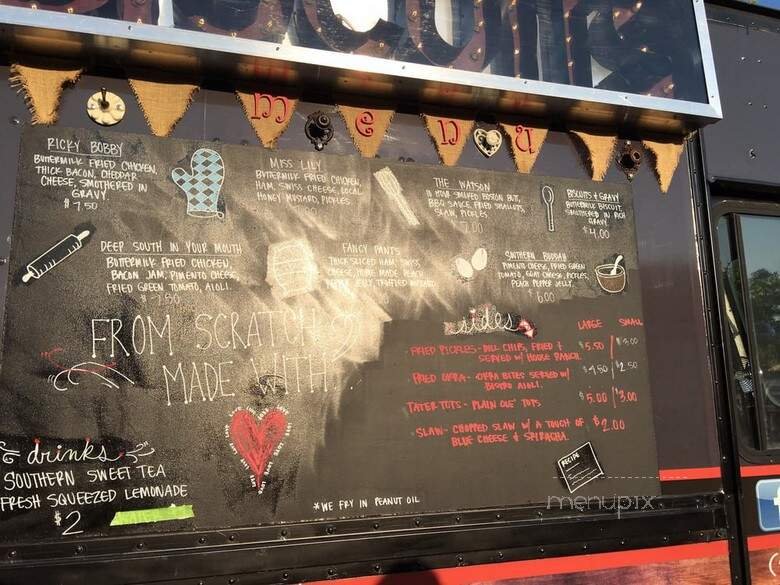 menu
RICKY BOBBY
BUTTERMILK FRIED CHICKEN,
THICK BACON, CHEDDAR
CHEESE, SMOTHERED IN
GRAVY
$7.50
MISS LILY
BUTTERMILK FRIED CHICKEN,
HAM, SWISS CHEESE, LOCAL
HONEY MUSTARD, PICKLES
THE WATSON
12 HOUR SMOKED BOSTON BUTT,
BBQ SAUCE, FRIED SHALLOTS,
SLAW, PICKLES
7.00
BISCUITS & GRAVY
BUTTERMILK BISCUIT,
SMOTHERED IN RICH
GRAVY
$4.00
DEEP SOUTH IN YOUR MOUTH
BUTTERMILK FRIED CHICKEN,
BACON JAM, PIMENTO CHEESE
FRIED GREEN TOMATO, AIOLI.
$7.50
FANCY PANTS
THICK SLICED HAM, SWISS
CHEESE, HOME MADE PEACH
PEPPER JELLY, TRUFFLED MUSTARD
SOUTHERN BUDDAH
PIMENTO CHEESE, FRIED GREEN
TOMATO, GOAT CHEESE, PICKLES,
PEACH PEPPER JELLY.
$6.00
FROM SCRATCH
MADE WITH
sides
LARGE SMALL
FRIED PICKLES- DILL CHIPS, FRIED & $5.50 $3.00
SERVED W/ HOUSE RANCH
FRIED OKRA- OKRA BITES SERVED W/ $4.50 $2.50
BISTRO AIOLI.
TATER TOTS - PLAIN OLE' TOTS $5.00 $3.00
SLAW- CHOPPED SLAW W/ A TOUCH OF $2.00
BLUE CHEESE & SRIRACHA
drinks
SOUTHERN SWEET TEA
FRESH SQUEEZED LEMONADE
$2
*WE FRY IN PEANUT OIL
RECIPE
menupix
f